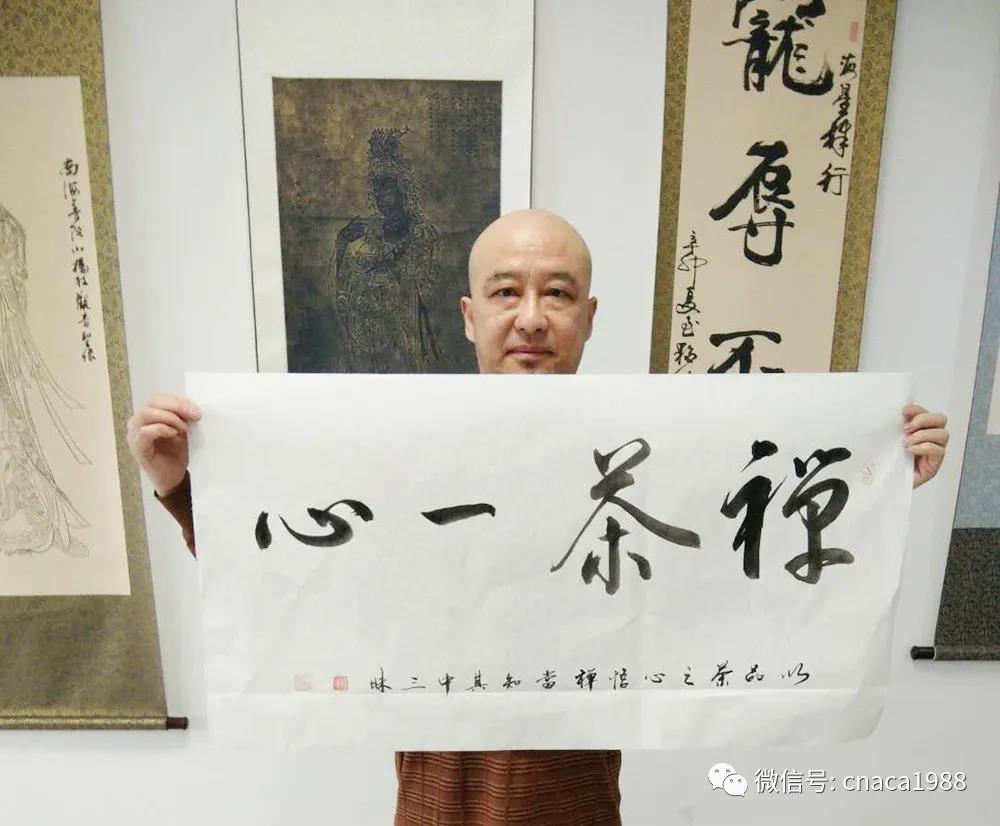 禅茶一心
以品茶之心悟禅當知其中三昧
龍
海星禅行
辱不
辛卯夏至
南海普陀山楊枝觀音聖像
微信号: cnaca1988